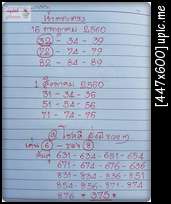 16 กรกฎาคม 2560
32 - 34 - 39
72 - 74 - 79
82 - 84 - 89
1 สิงหาคม 2560
31 - 34 - 36
51 - 54 - 56
71 - 74 - 76
เด่น (6) - รอง (8)
631 - 634 - 651 - 654
671 - 674 - 676 - 636
831 - 834 - 851 - 854
836 - 856 - 871 - 874
876 * 375 *
[447x600] upic.me